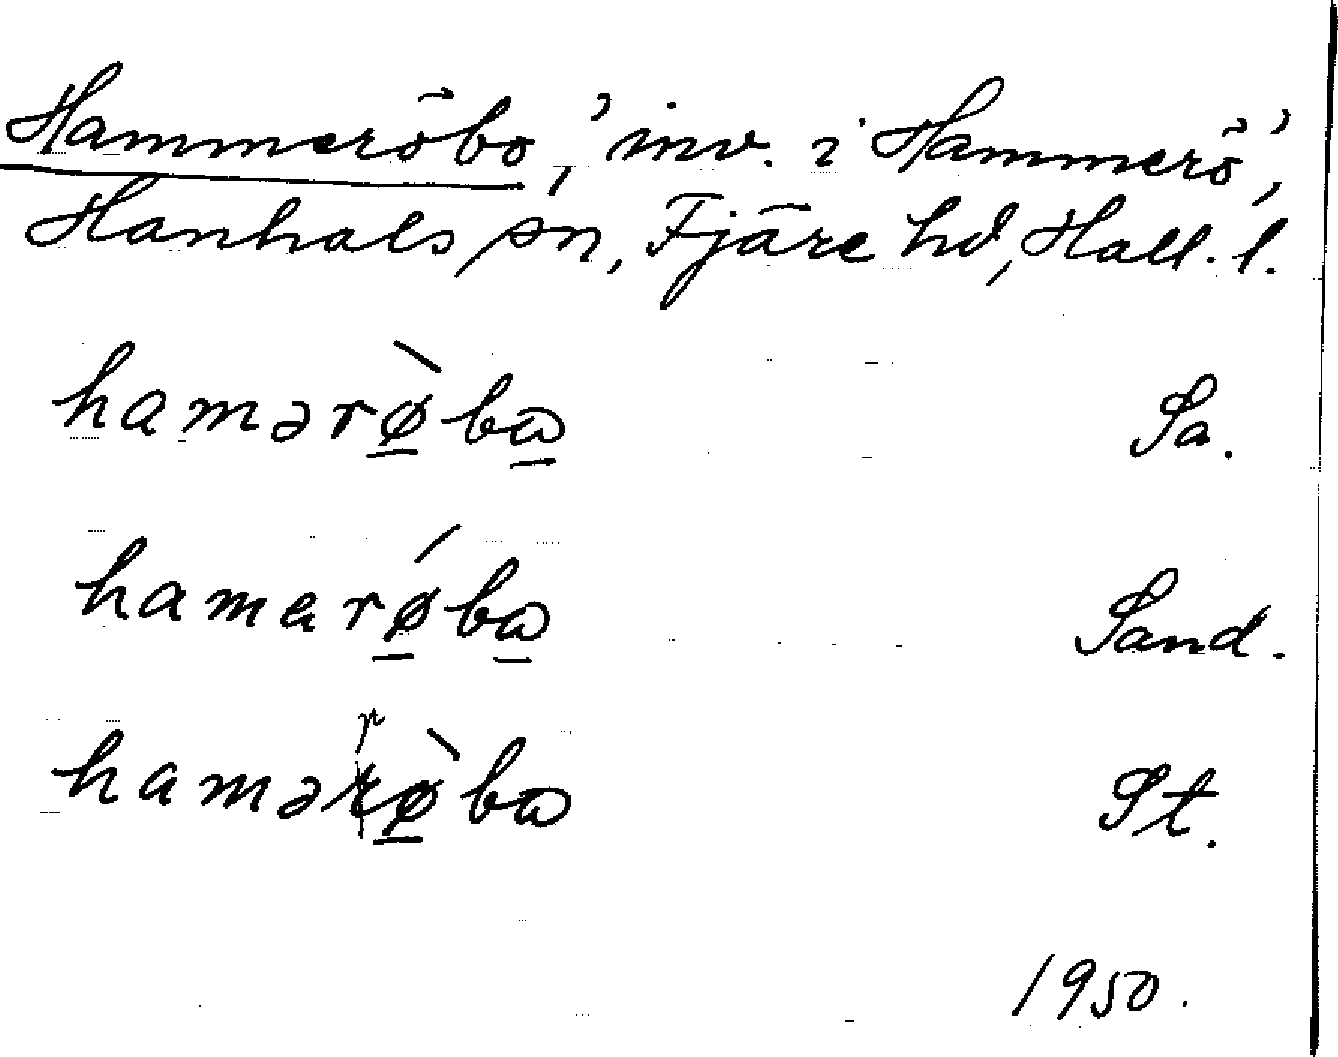 Hammeröbo, 'inv. i Hammerö',
Hanhals sn, Fjäre hd, Hall. l.
hamərø̲̀bω̲ Sa.
hamarǿ̲bω̲ Sand.
hamərø̲̀bω St.
1950.